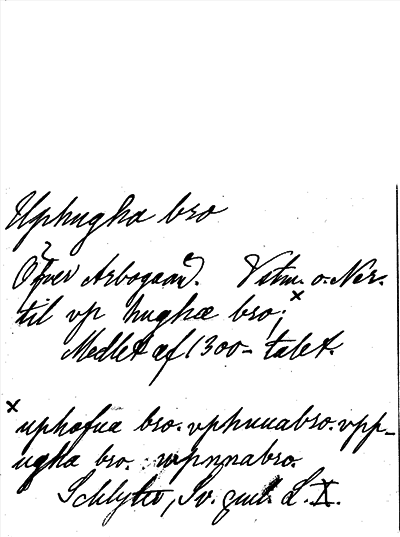 Uphugha bro
Öfver Arbogaån. Vstm. o. Ner.
til vp hughæ bro;x
Medlet af 1300-talet.
x uphofua bro. vphuuabro. vpp-
ugha bro. wpnnabro.
Schlyter, Sv. gml. L. X.